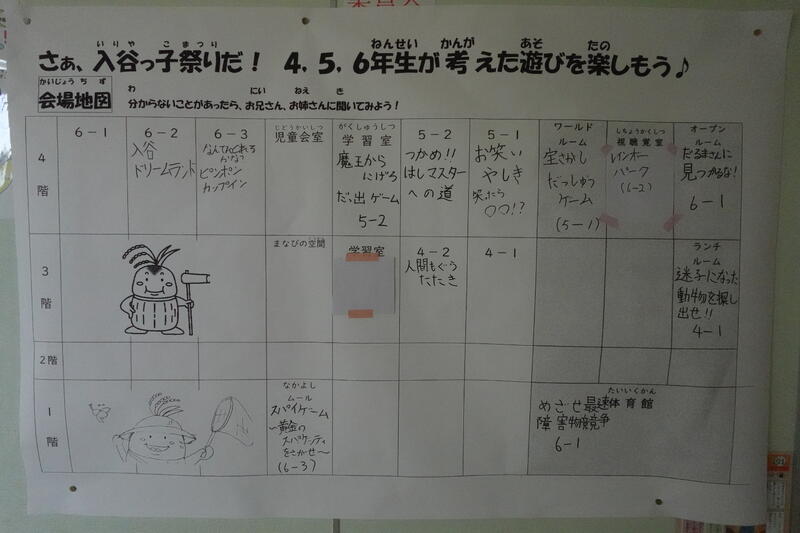 いりや こまつり ねんせい かんが あそ たの
さぁ、入谷っ子祭りだ！ 4，5，6年生が考えた遊びを楽しもう♪
かいじょうちず
会場地図
わ にい ねえ き
分からないことがあったら、お兄さん、お姉さんに聞いてみよう！
4階
6－1
6－2
入谷
ドリームランド
6－3
なんてひどれる
かな？
ピンポン
カップイン
じどうかいしつ
児童会室
がくしゅうしつ
学習室
魔王から
にげろ
だっ出ゲーム
5-2
5－2
つかめ!!
はしマスター
への道
5－1
お笑い
やしき
笑ったら
〇〇!?
ワールド
ルーム
宝さがし
だっしゅつ
ゲーム
(5-1)
しちょうかくしつ
視聴覚室
レインボー
パーク
(6-2)
オープン
ルーム
だるまさんに
見つかるな!
6-1
3階
まなびの空間
学習室
4－2
人間もぐら
たたき
4－1
ランチ
ルーム
迷子になった
動物を探し
出せ!!
4-1
2階
1階
なかよし
ルーム
スパイゲーム
～黄金の
スパゲッティ
をさがせ～
(6-3)
たいいくかん
体育館
めざせ最速
障害物競争
6-1